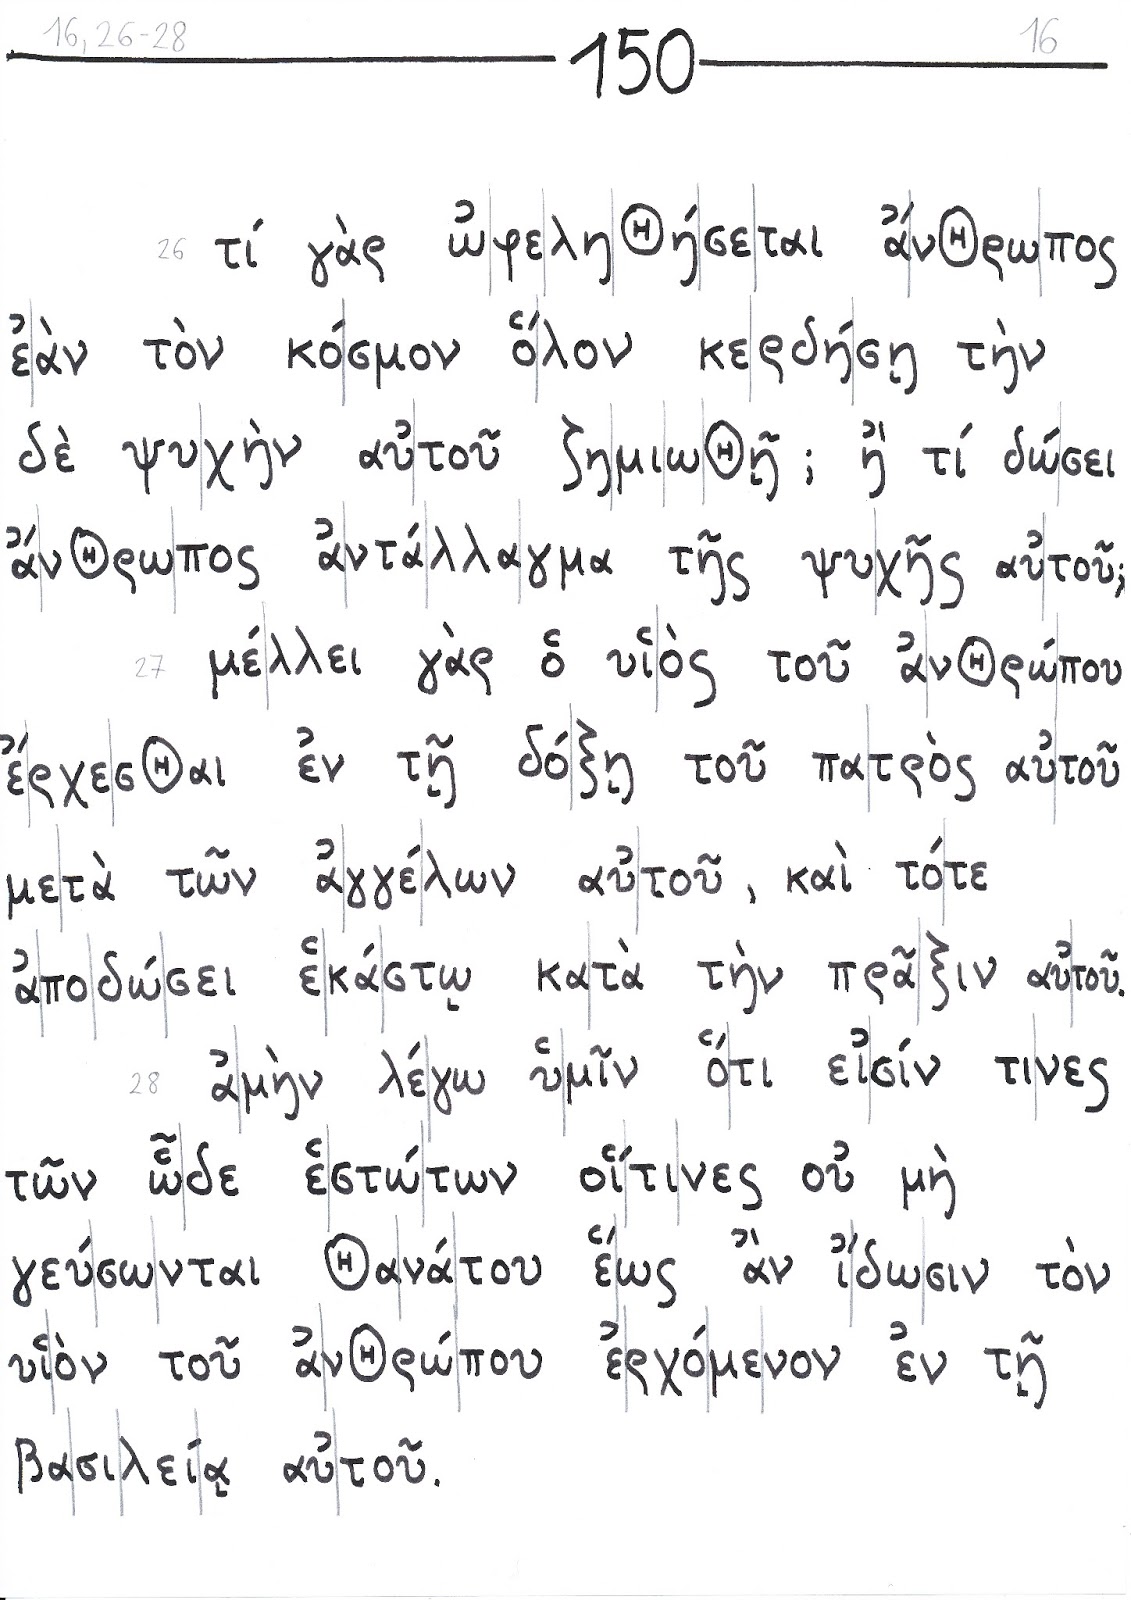 16, 26-28 150 16
26 τί γὰρ ὠφεληΘήσεται ἄνΘρωπος
ἐὰν τὸν κόσμον ὅλον κερδήσῃ τὴν
δὲ ψυχὴν αὐτοῦ ζημιωΘῇ; ἢ τί δώσει
ἄνΘρωπος ἀντάλλαγμα τῆς ψυχῆς αὐτοῦ;
27 μέλλει γὰρ ὁ υἱὸς τοῦ ἀνΘρώπου
ἔρχεσΘαι ἐν τῇ δόξῃ τοῦ πατρὸς αὐτοῦ
μετὰ τῶν ἀγγέλων αὐτοῦ, καὶ τότε
ἀποδώσει ἑκάστῳ κατὰ τὴν πρᾶξιν αὐτοῦ.
28 ἀμὴν λέγω ὑμῖν ὅτι εἰσίν τινες
τῶν ὧδε ἑστώτων οἵτινες οὐ μὴ
γεύσωνται Θανάτου ἕως ἂν ἴδωσιν τὸν
υἱὸν τοῦ ἀνΘρώπου ἐρχόμενον ἐν τῇ
βασιλείᾳ αὐτοῦ.